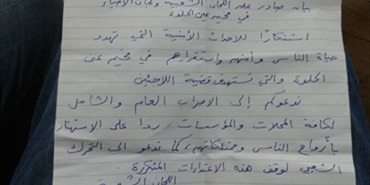 بيان صادر عن اللجان الشعبية ولجان الأحياء
في مخيم عين الحلوة
استنكارًا للأحداث الأمنية التي تهدد
حياة الناس وأمنهم واستقرارهم في مخيم عين
الحلوة والتي تستهدف قضية اللاجئين
ندعوكم إلى الاضراب العام والشامل
لكافة المحلات والمؤسسات، ردا على الاستهتار
بأرواح الناس وممتلكاتهم، كما ندعو الى التحرك
الشعبي لوقف هذه الاعتداءات المتكررة.
اللجان الشعبية